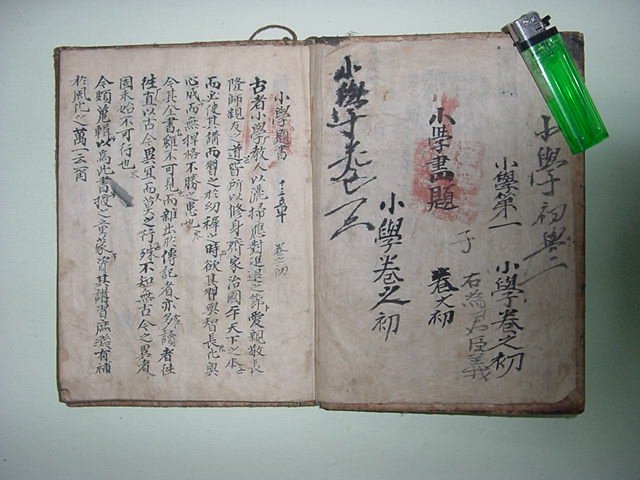 小學初
小學第一
小學卷之初
子
右為君臣義
小學書題
卷之初
小學卷之初
小學卷之
小學題書
卷之初
古者小學教人以灑掃應對進退之節愛親敬長
隆師親友之道皆所以修身齊家治國平天下之本
而必使其講而習之於幼穉之時欲其習與智長化與
心成而無扞格不勝之患也
今其全書雖不可見而雜出於傳記者亦多讀者往
往直以古今異宜而莫之行殊不知無古今之異者
固未始不可行也
今頗蒐輯以爲此書授之童蒙資其講習庶幾有補
於風化之萬一云爾